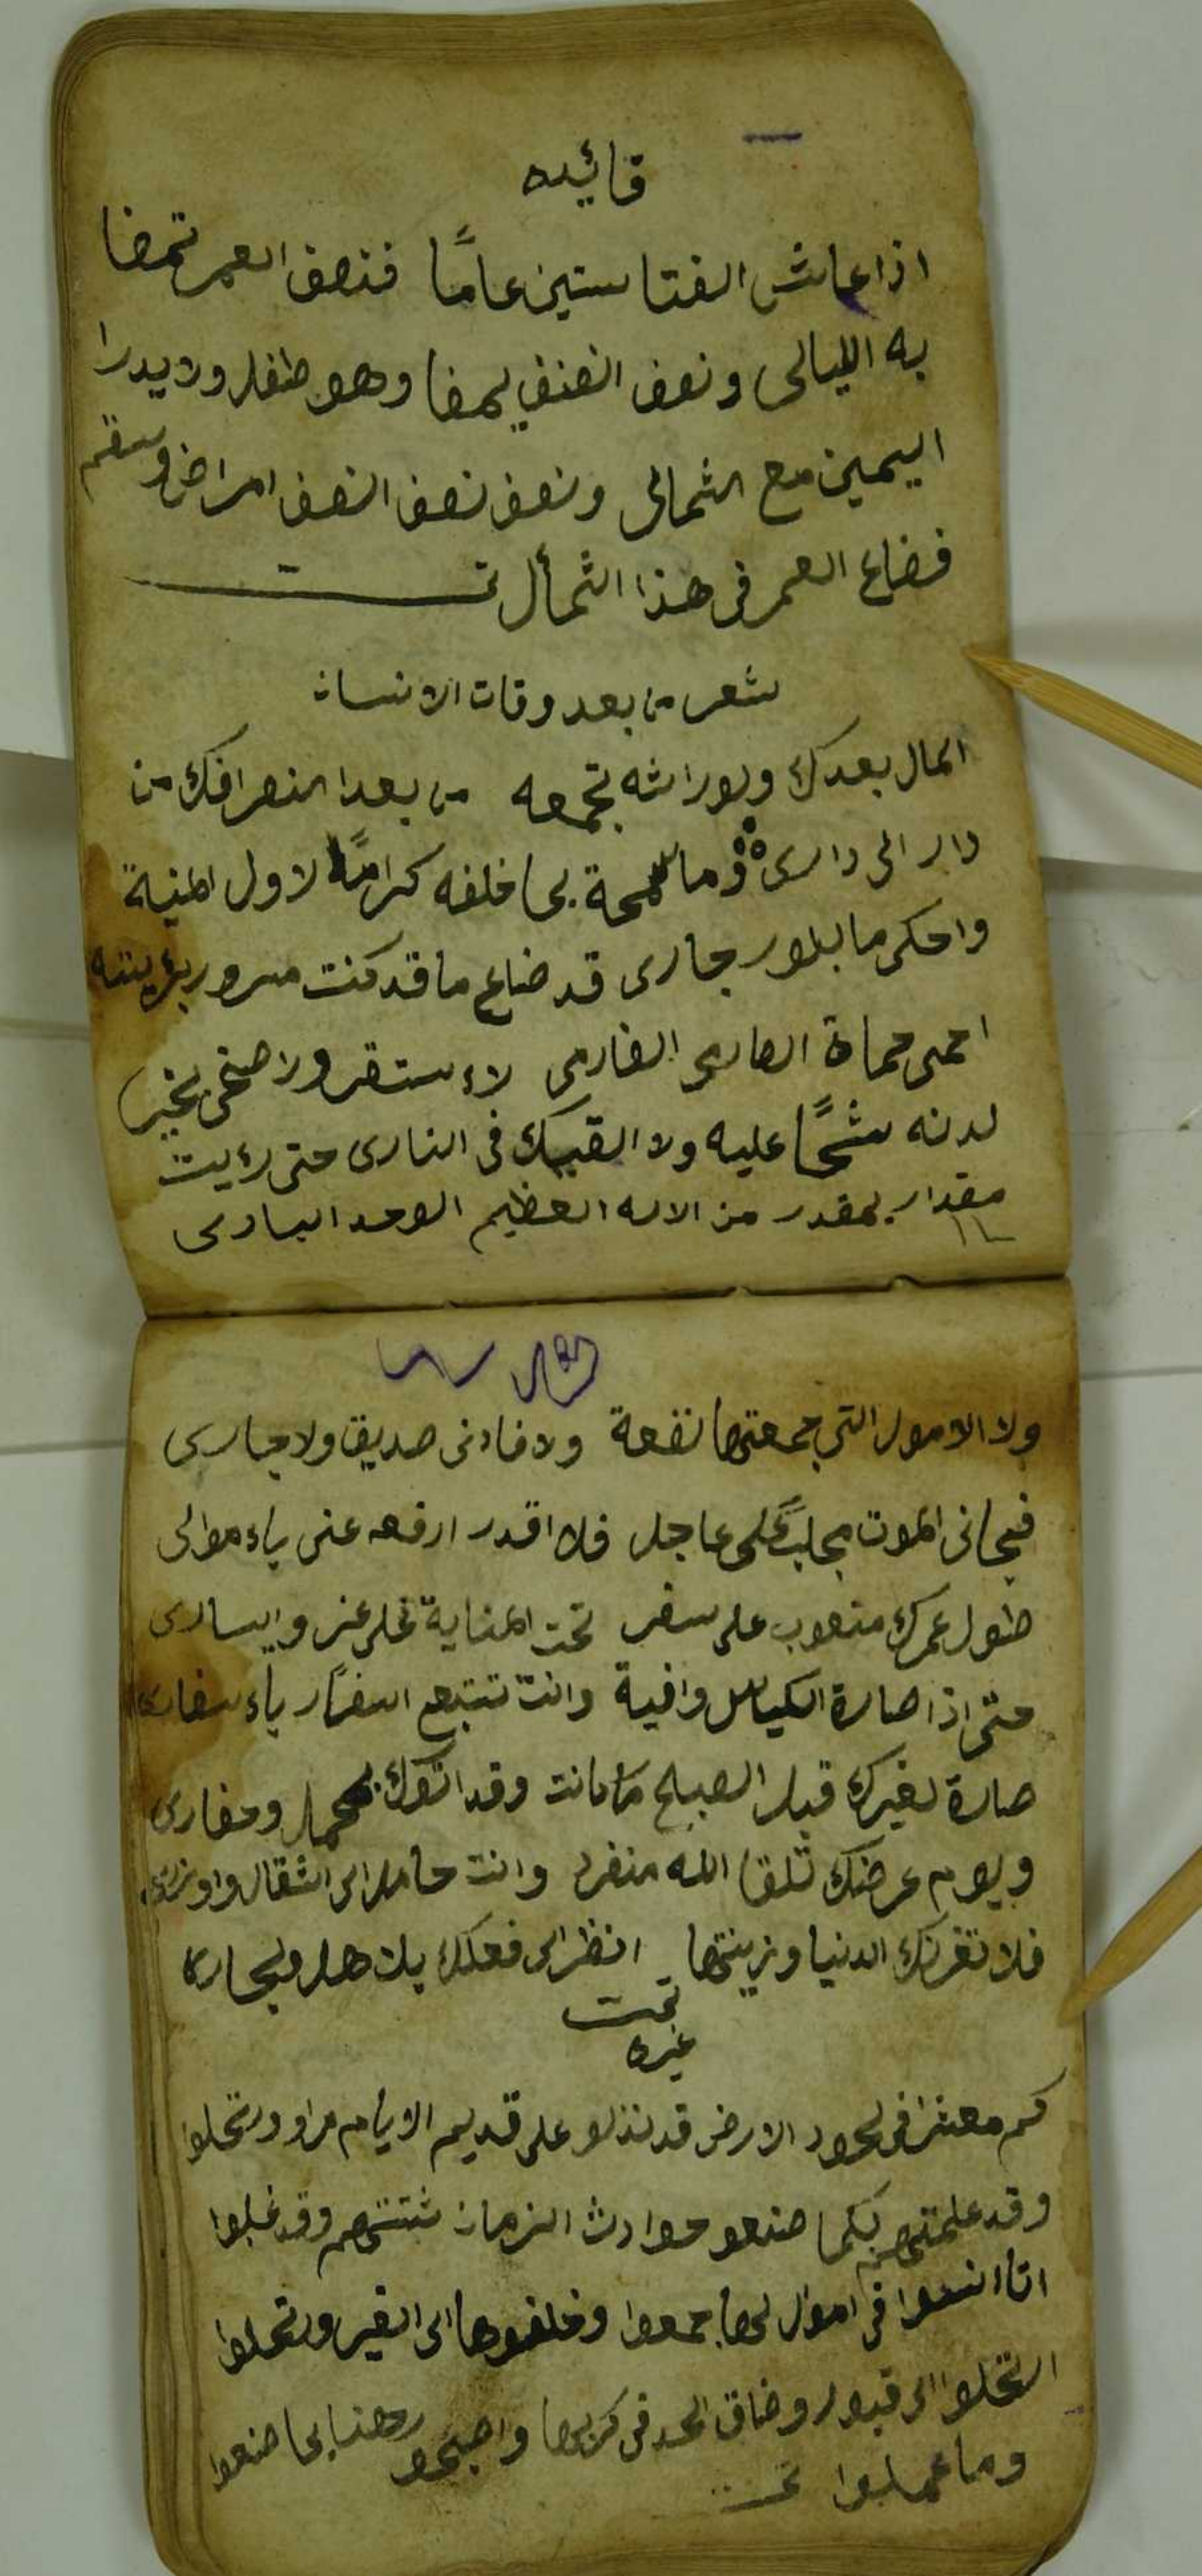 فائيده
اذا عاش الفتا ستين عامًا فنصف العمر تمضا
به الليالى ونصف النصف يمضا وهو طفل ولا يدرا
اليمين مع الشمالى ونصف نصف النصف امراض وسقم
فضاع العمر فى هذا الشمأل تـ
شعر من بعد وفات الانسان
المال بعدك ولوراثه تجمعه من بعد انصرافك من
دار الى دارى وما كرامًا لاول المنية
واحكى ما جارى قد ضاع ما قد كنت مسرور بزينته
احمى حماة لاء ستقر ولا
لدنه شحًا عليه ولا القيك فى النارى حتى رءيت
مقدار بمقدر من الاله العظيم الوحد البارى
ولا الامول التى جمعتها نفعة ولا فادنى صديق ولا جارى
فجانى الموت عاجل فلا اقدر ارفعه عنى ياء موالى
طول عمرك متعوب على سفر تحت المناية عز وايسارى
حتى اذا صارة الكياس وافية وانت تتبع اسفار ياء سفارى
صارة لغيرك قبل الصبح ما مانت وقد اتوك وحفارى
ويوم عرضك تلقا الله منفرد وانت حاملا اثقال واوزارى
فلا تغرنك الدنيا وزينتها انظر الى فعلك
تمت
غيره
كم معشرا فى لحود الارض قد نذلو على قديم الايام مرا وورتحلوا
وقد علمتهم بكما صنعو حوادث الزمان شتتهم وقد غلبوا
اموال لها جمعوا وخلفوها الى الغير ورتحلوا
ارتحلوا الى قبور وضاق الحد فى كربها واصبحو رهنا بما صنعوا
وما عملوا تمـ